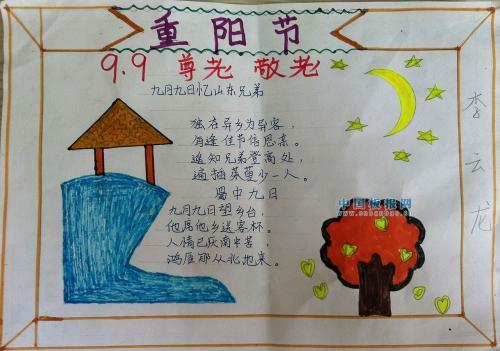 重阳节
9.9 尊老 敬老
九月九日忆山东兄弟
独在异乡为异客，
每逢佳节倍思亲。
遥知兄弟登高处，
遍插茱萸少一人。
蜀中九日
九月九日望乡台，
他席他乡送客杯。
人情已厌南中苦，
鸿雁那从北地来。
李云龙
中国板报网